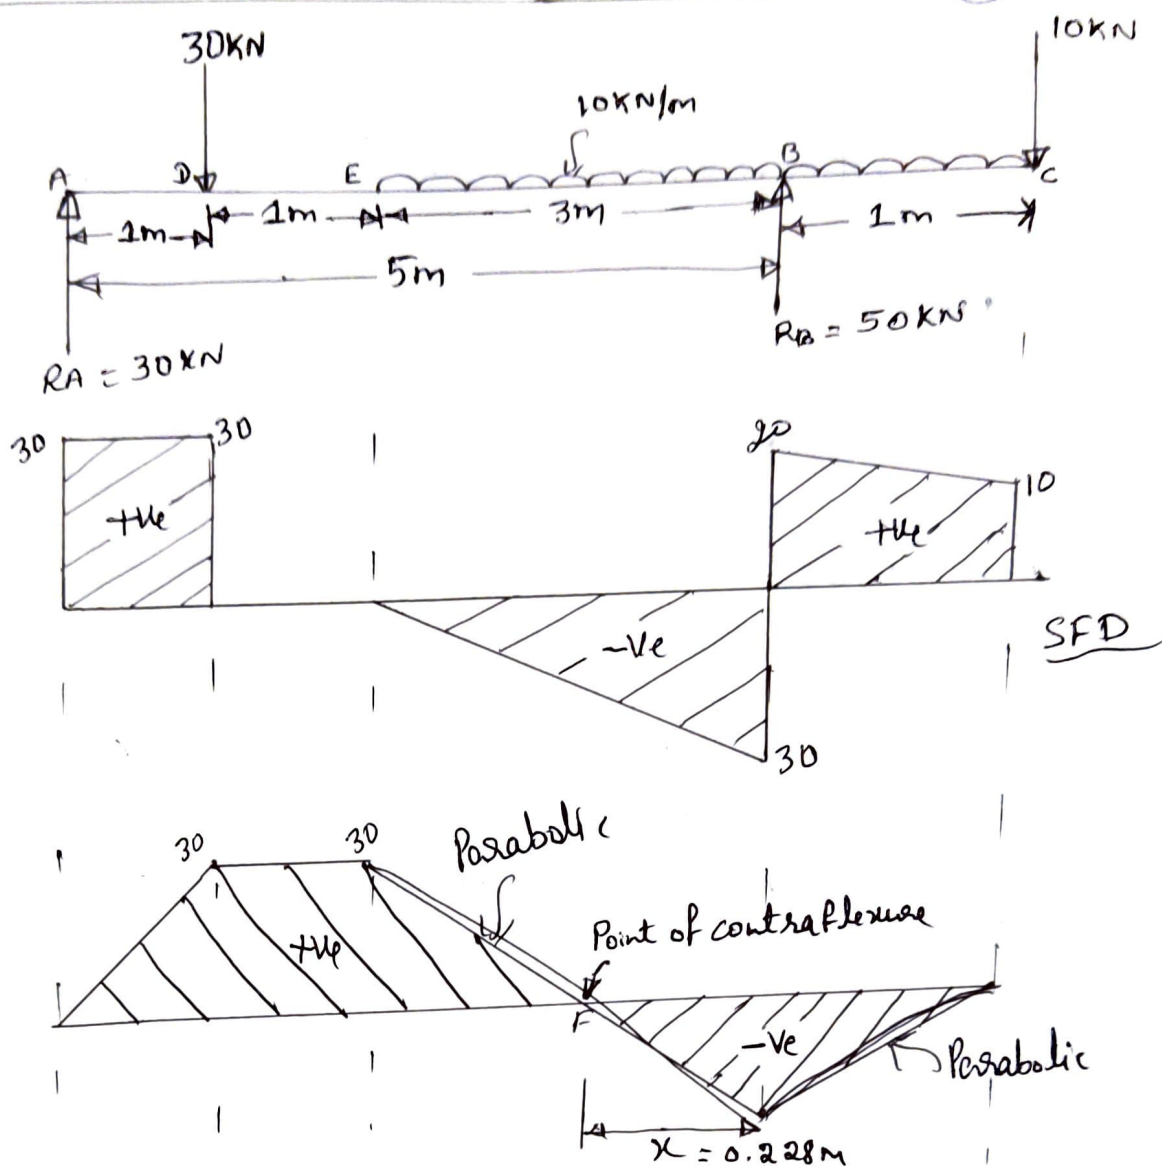 30KN
10KN
10KN/m
A
D
E
B
C
1m
1m
3m
1m
5m
RA = 30KN
RB = 50KN
30
30
20
10
+Ve
+Ve
-Ve
SFD
30
30
30
Parabolic
+Ve
Point of contraflexure
F
-Ve
Parabolic
x = 0.228m